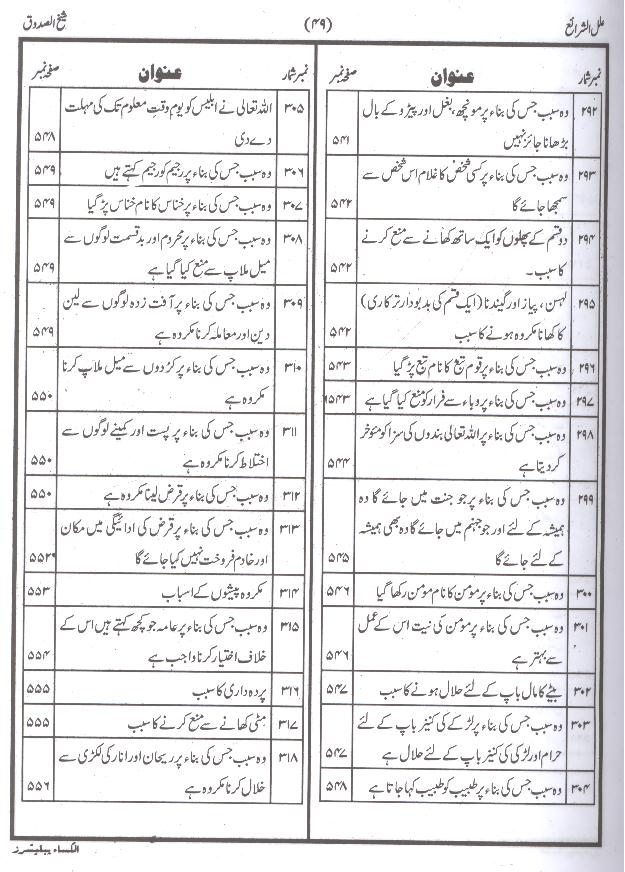 علل الشرائع (۴۹) شیخ الصدوق
نمبر شمار عنوان صفحہ نمبر
۲۹۲ وہ سبب جس کی بناء پر مونچھ، بغل اور پیڑو کے بال
بڑھانا جائز نہیں ۵۴۱
۲۹۳ وہ سبب جس کی بناء پر کسی شخص کا غلام اس شخص سے
سمجھا جائے گا ۵۴۲
۲۹۴ دو قسم کے پھلوں کو ایک ساتھ کھانے سے منع کرنے
کا سبب۔ ۵۴۲
۲۹۵ لہسن، پیاز اور گیندنا (ایک قسم کی بدبودار ترکاری)
کا کھانا مکروہ ہونے کا سبب ۵۴۲
۲۹۶ وہ سبب جس کی بناء پر قوم تبع کا نام تبع پڑ گیا ۵۴۳
۲۹۷ وہ سبب جس کی بناء پر وباء سے فرار کو منع کیا گیا ہے ۵۴۳
۲۹۸ وہ سبب جس کی بناء پر اللہ تعالی بندوں کی سزا کو مؤخر
کر دیتا ہے ۵۴۴
۲۹۹ وہ سبب جس کی بناء پر جو جنت میں جائے گا وہ
ہمیشہ کے لئے اور جو جہنم میں جائے گا وہ بھی ہمیشہ
کے لئے جائے گا ۵۴۵
۳۰۰ وہ سبب جس کی بناء پر مومن کا نام مومن رکھا گیا ۵۴۶
۳۰۱ وہ سبب جس کی بناء پر مومن کی نیت اس کے عمل
سے بہتر ہے ۵۴۶
۳۰۲ بیٹے کا مال باپ کے لئے حلال ہونے کا سبب ۵۴۷
۳۰۳ وہ سبب جس کی بناء پر لڑکے کی کنیز باپ کے لئے
حرام اور لڑکی کی کنیز باپ کے لئے حلال ہے ۵۴۷
۳۰۴ وہ سبب جس کی بناء پر طبیب کو طبیب کہا جاتا ہے ۵۴۸
نمبر شمار عنوان صفحہ نمبر
۳۰۵ اللہ تعالی نے ابلیس کو یوم وقت معلوم تک کی مہلت
دے دی ۵۴۸
۳۰۶ وہ سبب جس کی بناء پر رجیم کو رجیم کہتے ہیں ۵۴۹
۳۰۷ وہ سبب جس کی بناء پر خناس کا نام خناس پڑ گیا ۵۴۹
۳۰۸ وہ سبب جس کی بناء پر محروم اور بدقسمت لوگوں سے
میل ملاپ سے منع کیا گیا ہے ۵۴۹
۳۰۹ وہ سبب جس کی بناء پر آفت زدہ لوگوں سے لین
دین اور معاملہ کرنا مکروہ ہے ۵۴۹
۳۱۰ وہ سبب جس کی بناء پر کردوں سے میل ملاپ کرنا
مکروہ ہے ۵۵۰
۳۱۱ وہ سبب جس کی بناء پر پست اور کمینے لوگوں سے
اختلاط کرنا مکروہ ہے ۵۵۰
۳۱۲ وہ سبب جس کی بناء پر قرض لینا مکروہ ہے ۵۵۰
۳۱۳ وہ سبب جس کی بناء پر قرض کی ادائیگی میں مکان
اور خادم فروخت نہیں کیا جائے گا ۵۵۲
۳۱۴ مکروہ پیشوں کے اسباب ۵۵۳
۳۱۵ وہ سبب جس کی بناء پر عامہ جو کچھ کہتے ہیں اس کے
خلاف اختیار کرنا واجب ہے ۵۵۴
۳۱۶ پردہ داری کا سبب ۵۵۵
۳۱۷ مٹی کھانے سے منع کرنے کا سبب ۵۵۵
۳۱۸ وہ سبب جس کی بناء پر ریحان اور انار کی لکڑی سے
خلال کرنا مکروہ ہے ۵۵۶
الکساء پبلیشرز